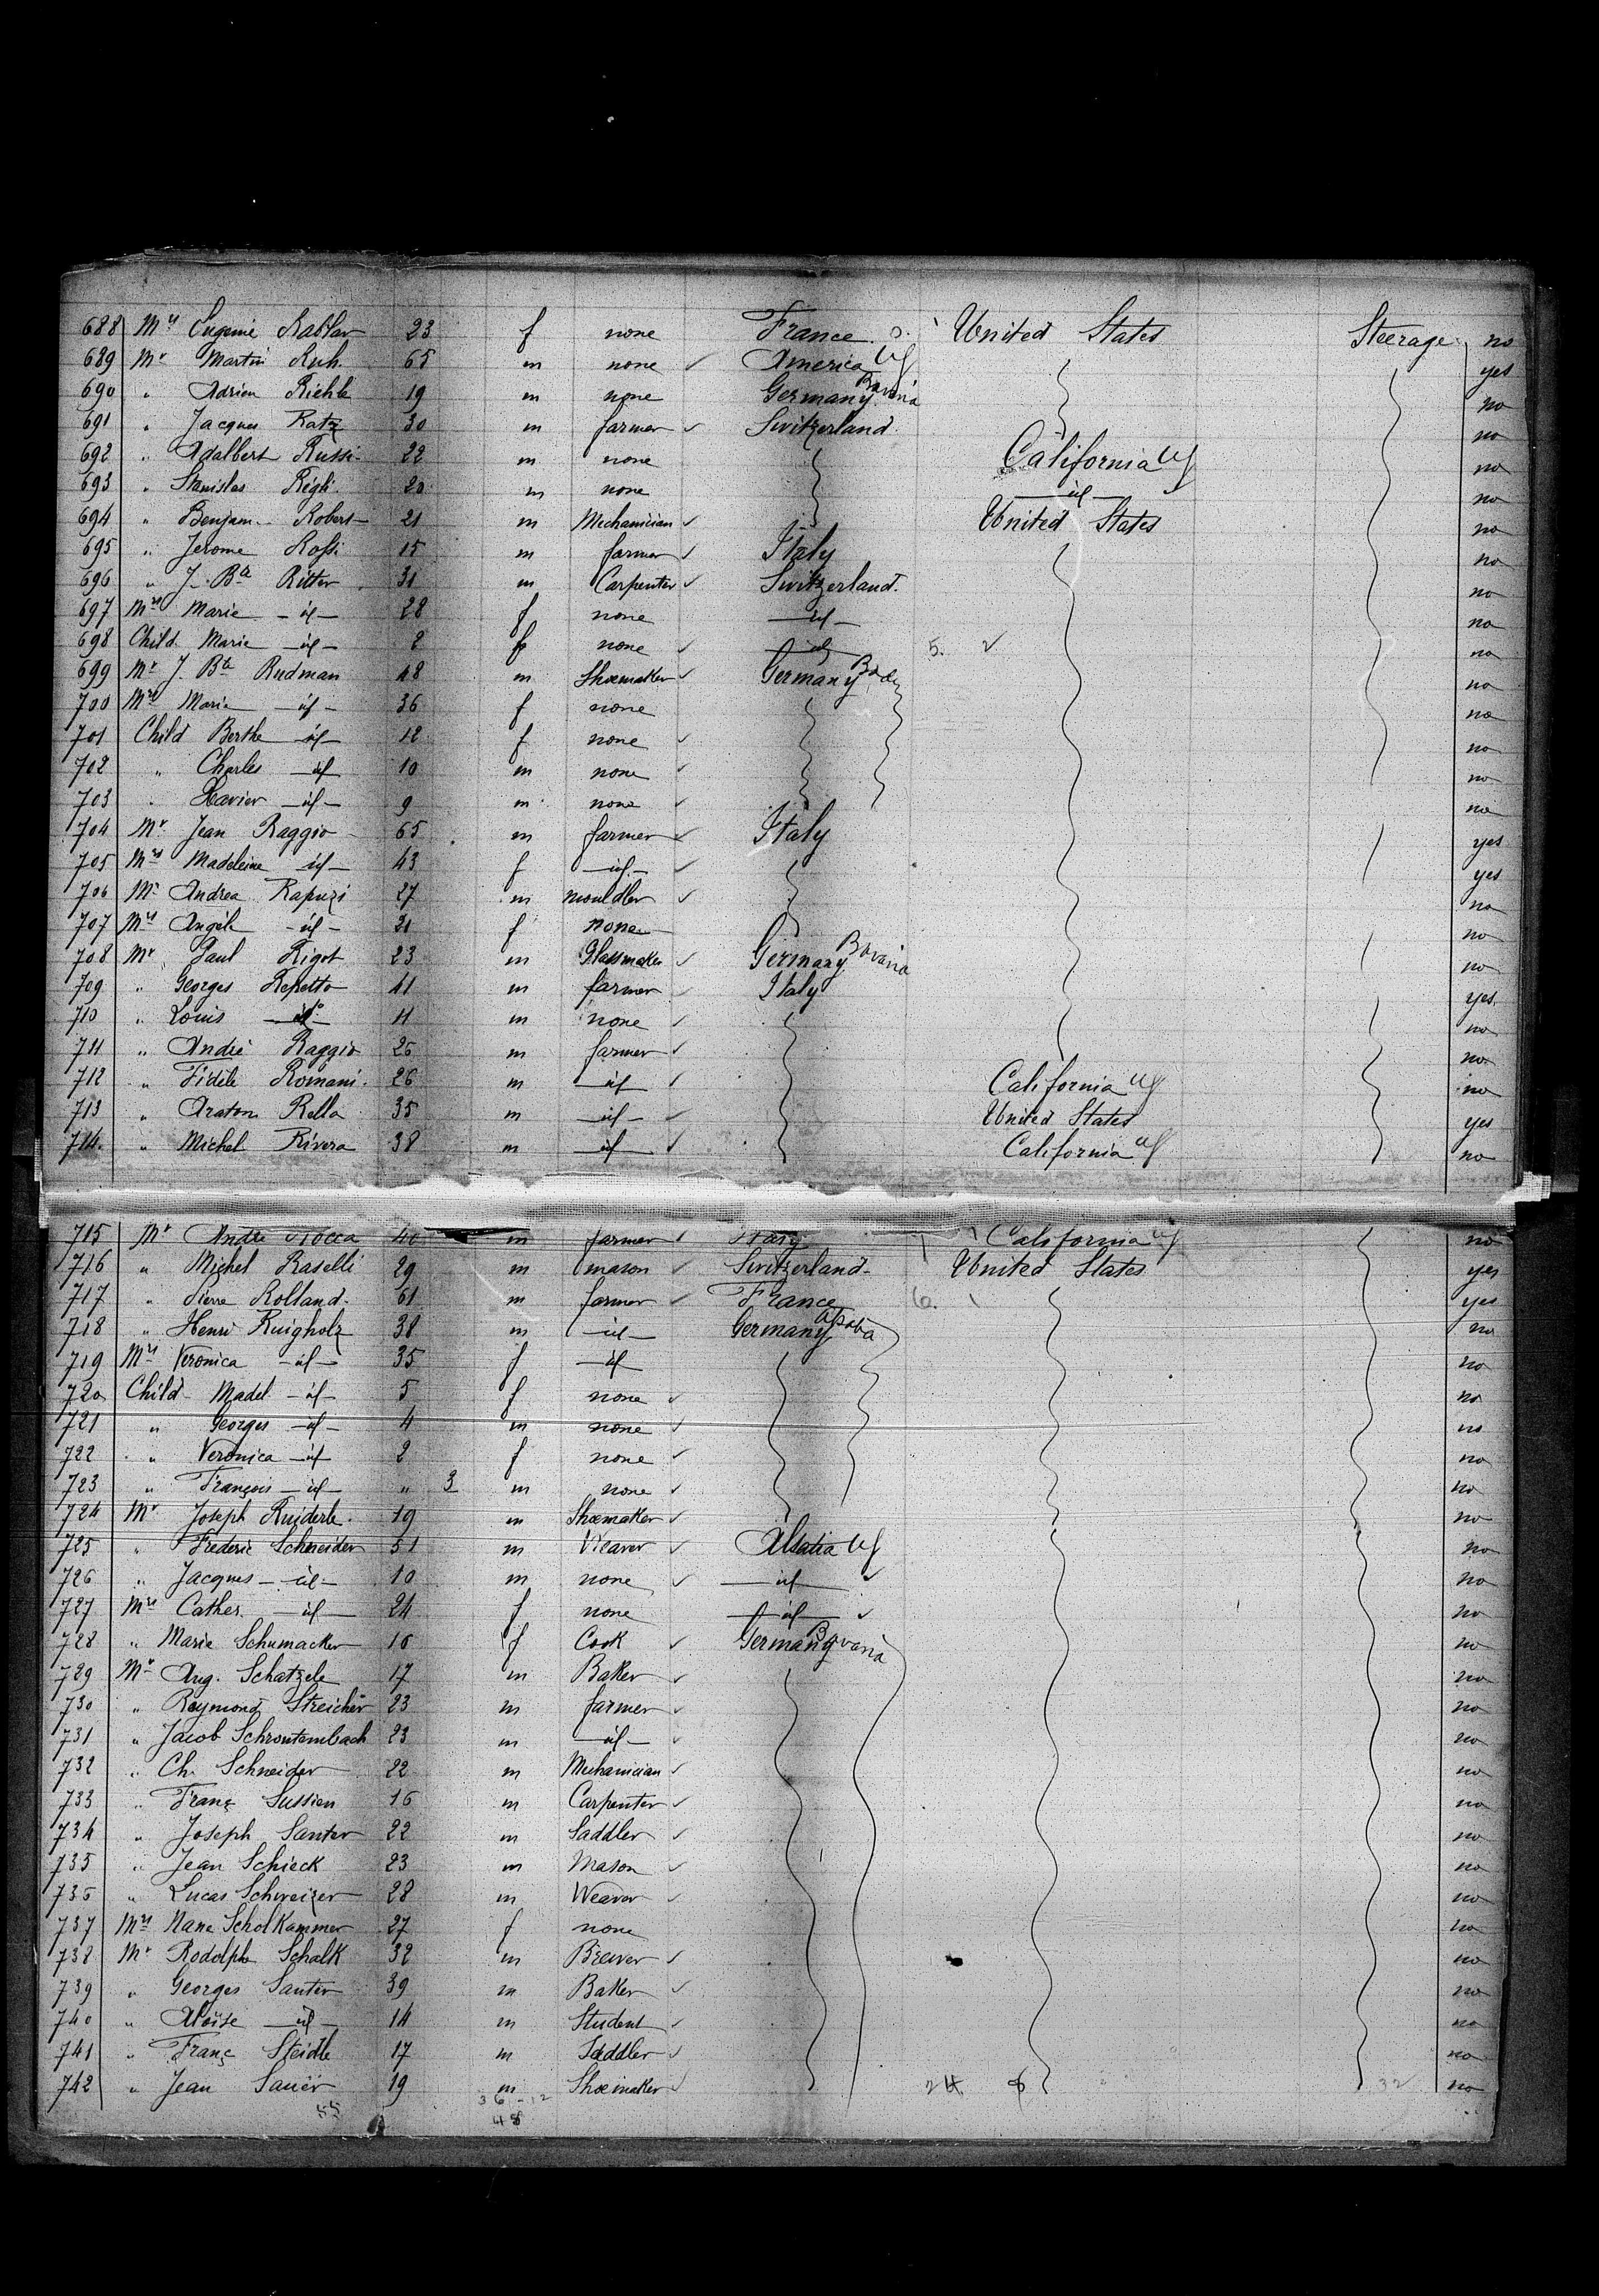 688 Mrs Eugenie Rablar 23 f none France United States Steerage no
689 Mr Martin Ruh. 65 m none America yes
690 " Adrien Riehle 19 m none Germany Bavaria no
691 " Jacques Ratz 30 m farmer Switzerland no
692 " Adalbert Russi 22 m none California no
693 " Stanislas Régli 20 m none id no
694 " Benjam. Robert 21 m Mechanician United States no
695 " Jerome Rossi 15 m farmer Italy no
696 " J. Bte Ritter 31 m Carpenter Switzerland. no
697 Mrs Marie id 28 f none id no
698 Child Marie id 2 f none id 5. no
699 Mr J. Bte Rudman 48 m Shoemaker Germany Baden no
700 Mrs Marie id 36 f none no
701 Child Berthe id 12 f none no
702 " Charles id 10 m none no
703 " Xavier id 9 m none no
704 Mr Jean Raggio 65 m farmer Italy yes
705 Mrs Madeleine id 43 f id yes
706 Mr Andrea Rapuzi 27 m mouldler no
707 Mrs Angèle id 21 f none no
708 Mr Paul Rigot 23 m Glassmaker Germany Bavaria no
709 " Georges Repetto 41 m farmer Italy yes
710 " Louis id 11 m none no
711 " André Raggio 26 m farmer no
712 " Fidèle Romani 26 m id California no
713 " Araton Rella 35 m id United States yes
714 " Michel Rivera 38 m id California no
715 Mr André Rocca 40 m farmer Italy California no
716 " Michel Raselli 29 m mason Switzerland United States yes
717 " Pierre Rolland 61 m farmer France 6. yes
718 " Henri Ruigholz 38 m id Germany Alsatia no
719 Mrs Veronica id 35 f id no
720 Child Madel id 5 f none no
721 " Georges id 4 m none no
722 " Veronica id 2 f none no
723 " François id " 3 m none no
724 Mr Joseph Ruiderle 19 m Shoemaker no
725 " Frederic Schneider 51 m Weaver Alsatia no
726 " Jacques id 10 m none id no
727 Mrs Cather. id 24 f none id no
728 " Marie Schumacker 16 f Cook Germany Bavaria no
729 Mr Aug. Schatzele 17 m Baker no
730 " Raymond Streicher 23 m farmer no
731 " Jacob Schrontembach 23 m id no
732 " Ch. Schneider 22 m Mechanician no
733 " Franç Sussien 16 m Carpenter no
734 " Joseph Santer 22 m Saddler no
735 " Jean Schieck 23 m Mason no
736 " Lucas Schweizer 28 m Weaver no
737 Mrs Nane Scholkammer 27 f none no
738 Mr Rodolphe Schalk 32 m Brewer no
739 " Georges Santer 39 m Baker no
740 " Aloïse id 14 m Student no
741 " Franç Steidle 17 m Saddler no
742 " Jean Sauër 19 m Shoemaker 24 8 32 no
55 36-12
48